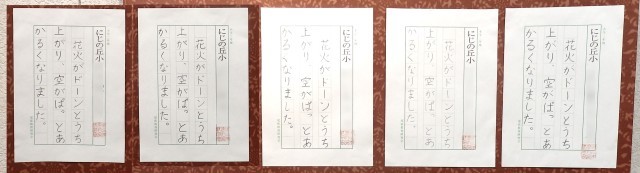 にじの丘小
花火がドーンとうち
上がり、空がぱっとあ
かるくなりました。
にじの丘小
花火がドーンとうち
上がり、空がぱっとあ
かるくなりました。
にじの丘小
花火がドーンとうち
上がり、空がぱっとあ
かるくなりました。
にじの丘小
花火がドーンとうち
上がり、空がぱっとあ
かるくなりました。
にじの丘小
花火がドーンとうち
上がり、空がぱっとあ
かるくなりました。